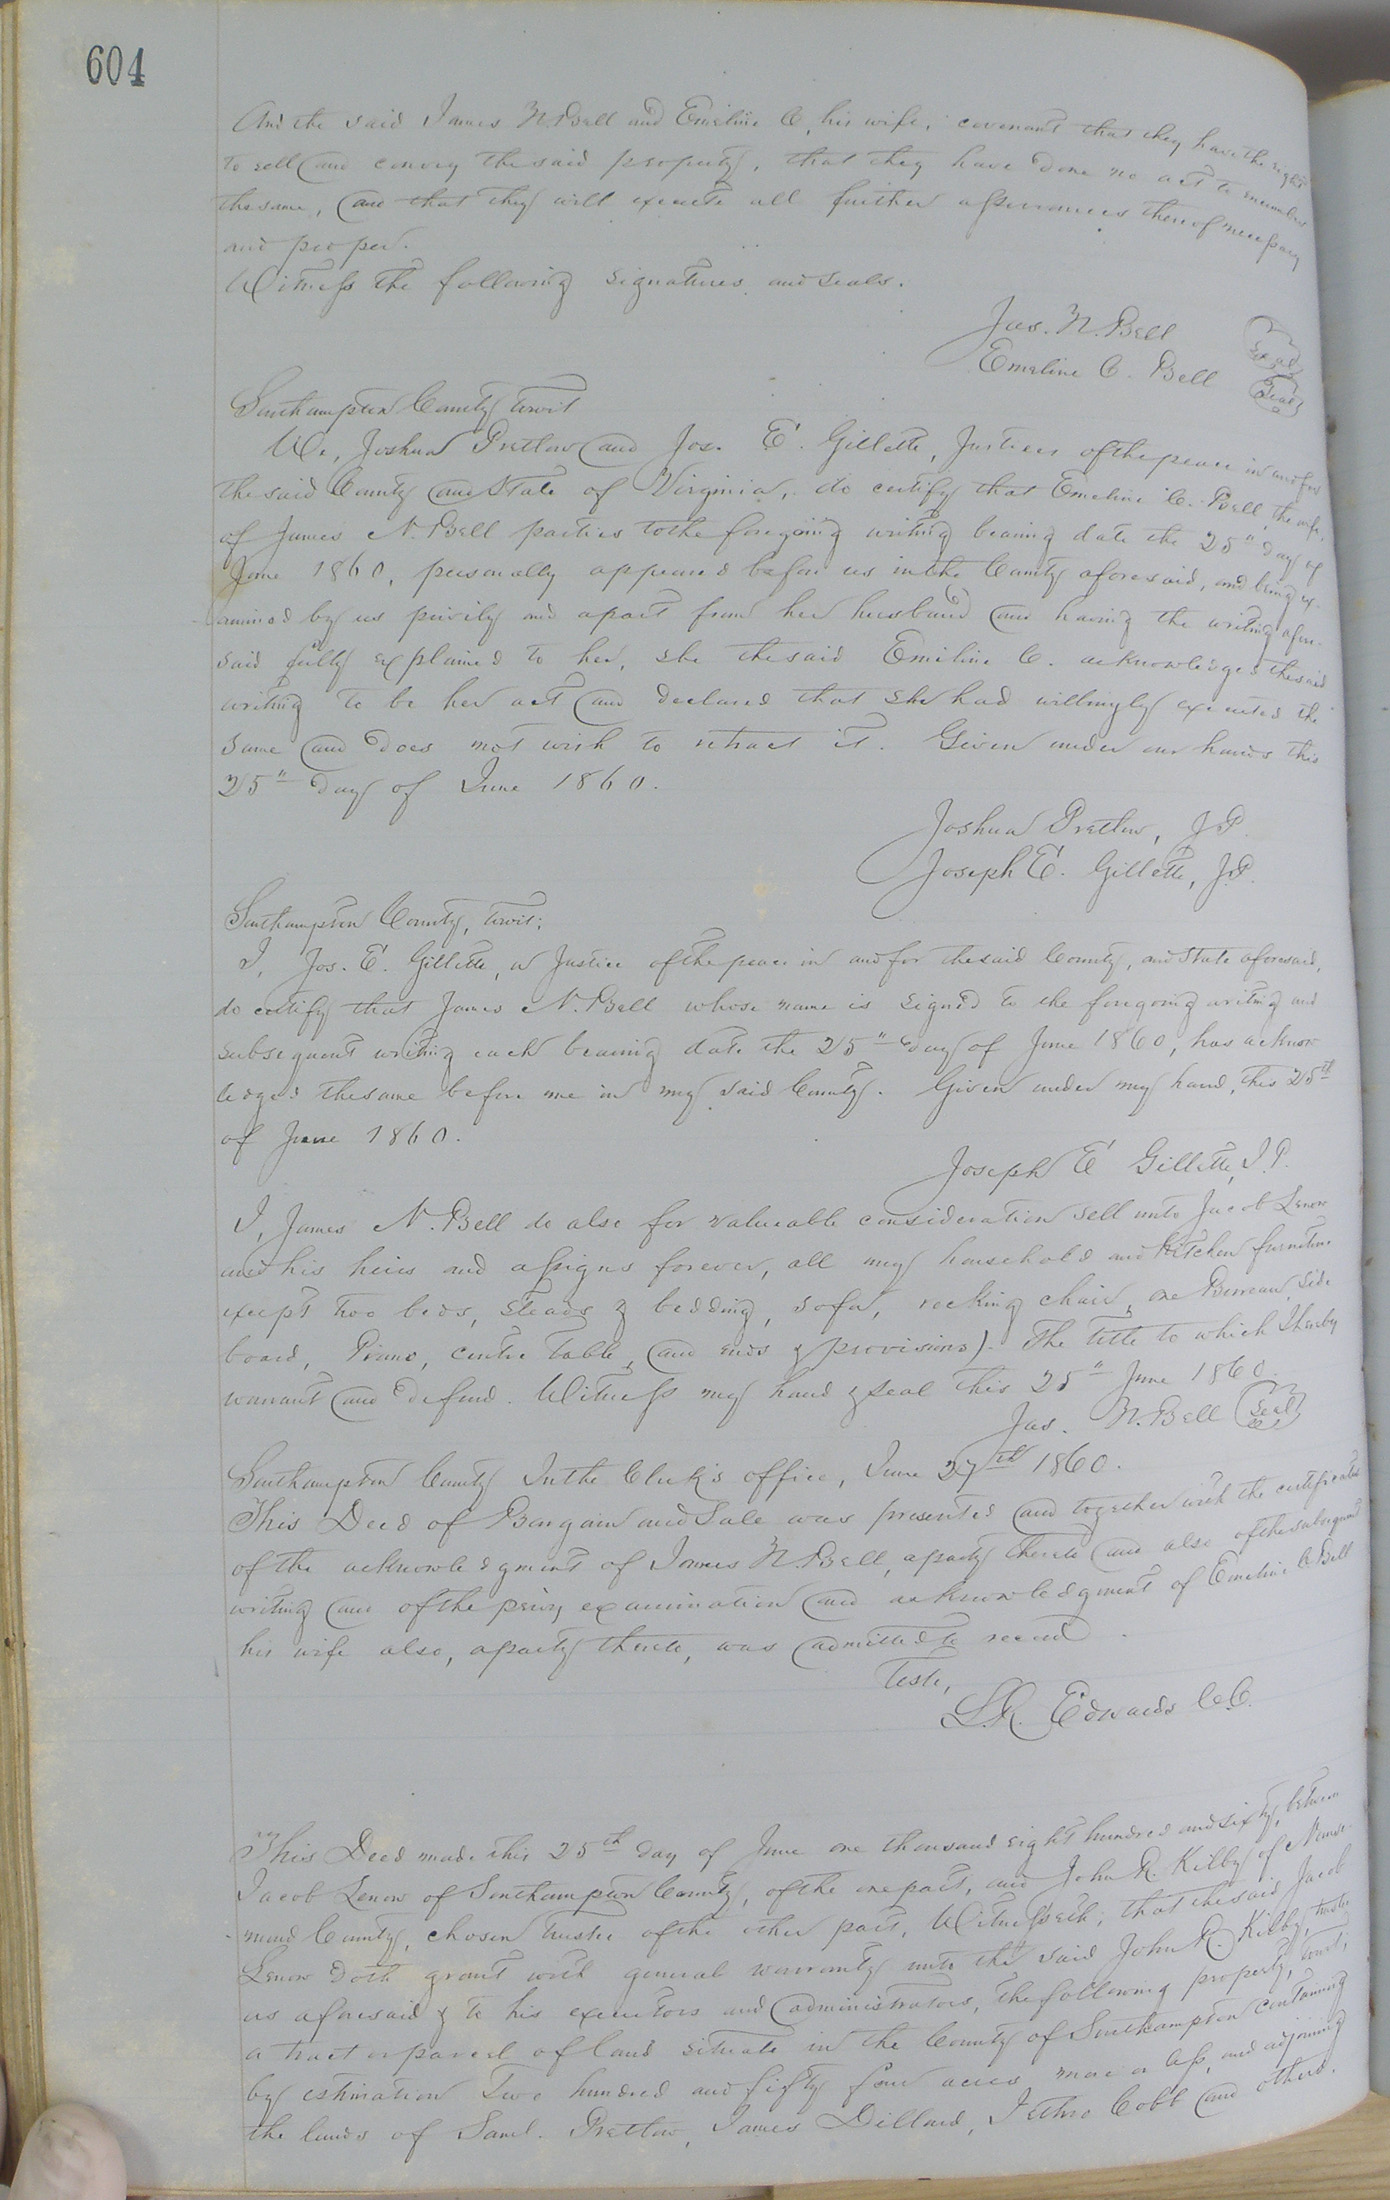 604
And the said James N. Bell and Emeline C, his wife, covenant that they have the right
to sell and convey the said property, that they have done no act to encumber
the same, and that they will execute all further assurances thereof necessary
and proper.
Witness the following signatures and seals.
Jas. N. Bell Seal
Emeline C. Bell Seal
Southampton County, towit
We, Joshua Pretlow and Jos. E. Gillette, Justices of the peace in and for
the said County and State of Virginia, do certify that Emeline C. Bell, the wife
of James N. Bell parties to the foregoing writing bearing date the 25" day of
June 1860, personally appeared before us in the County aforesaid, and being ex-
amined by us privily and apart from her husband and having the writing afore-
said fully explained to her, she the said Emeline C. acknowledged the said
writing to be her act and declared that she had willingly executed the
same and does not wish to retract it. Given under our hands this
25" day of June 1860.
Joshua Pretlow, J.P.
Joseph E. Gillette, J.P.
Southampton County, towit:
I, Jos. E. Gillette, a Justice of the peace in and for the said County, and State aforesaid,
do certify that James N. Bell whose name is signed to the foregoing writing and
subsequent writing each bearing date the 25" day of June 1860, has acknow
ledged the same before me in my said County. Given under my hand, this 25th
of June 1860.
Joseph E Gillette, J.P.
I, James N. Bell do also for valuable consideration sell unto Jacob Lenow
and his heirs and assigns forever, all my household and kitchen furniture
except two beds, steads & bedding, sofa, rocking chair, one Bureau, side
board, Piano, centre table, and ends & provisions). The title to which I hereby
warrant and defend. Witness my hand & seal this 25" June 1860.
Jas. N. Bell Seal
Southampton County In the Clerk's office, June 27th 1860.
This Deed of Bargain and Sale was presented and together with the certificates
of the acknowledgment of James N. Bell, a party thereto and also of the subsequent
writing and of the privy examination and acknowledgment of Emeline C. Bell
his wife also, a party thereto, was admitted to record.
Teste,
L. R. Edwards C.C.
This Deed made this 25th day of June one thousand eight hundred and sixty, between
Jacob Lenow of Southampton County, of the one part, and John R. Kilby of Nanse-
mond County, chosen trustee of the other part, Witnesseth; that the said Jacob
Lenow doth grant with general warranty unto the said John R. Kilby, trustee
as aforesaid & to his executors and administrators, the following property, towit;
a tract or parcel of land situate in the County of Southampton containing
by estimation Two hundred and fifty four acres more or less, and adjoining
the lands of Saml. Pretlow, James Dillard, Jethro Cobb and others.